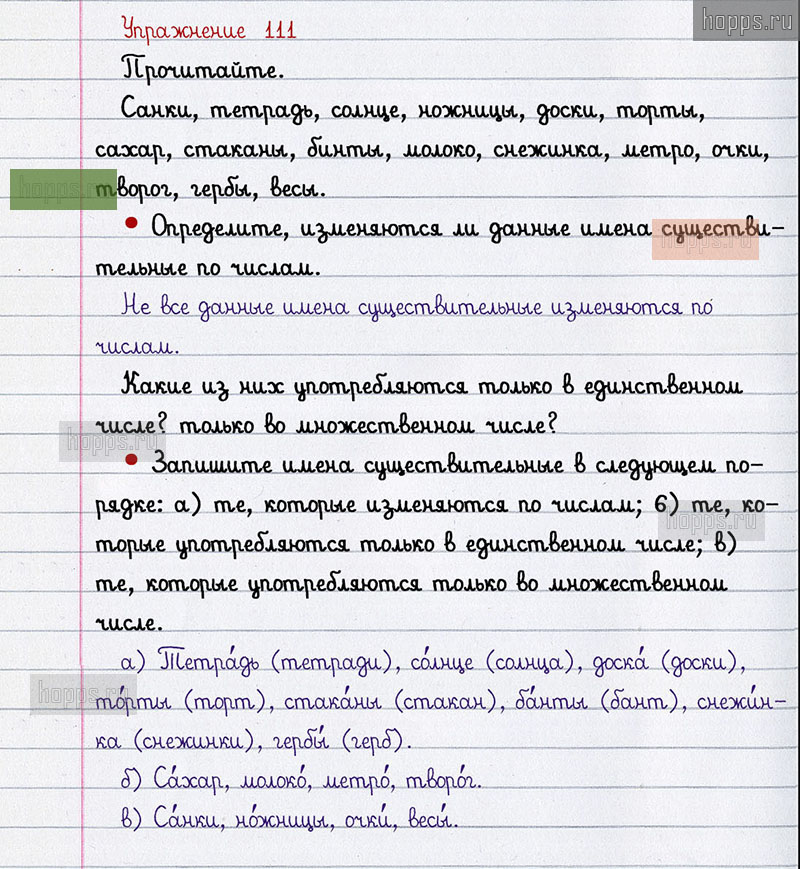 hopps.ru
Упражнение 111
Прочитайте.
Санки, тетрадь, солнце, ножницы, доски, торты,
сахар, стаканы, бинты, молоко, снежинка, метро, очки,
творог, гербы, весы.
• Определите, изменяются ли данные имена существи-
тельные по числам.
Не все данные имена существительные изменяются по
числам.
Какие из них употребляются только в единственном
числе? только во множественном числе?
• Запишите имена существительные в следующем по-
рядке: а) те, которые изменяются по числам; б) те, ко-
торые употребляются только в единственном числе; в)
те, которые употребляются только во множественном
числе.
а) Тетра́дь (тетради), со́лнце (солнца), доска́ (доски),
то́рты (торт), стака́ны (стакан), ба́нты (бант), снежи́н-
ка (снежинки), гербы́ (герб).
б) Са́хар, молоко́, метро́, творо́г.
в) Са́нки, но́жницы, очки́, весы́.
hopps.ru
hopps.ru
hopps.ru
hopps.ru
hopps.ru